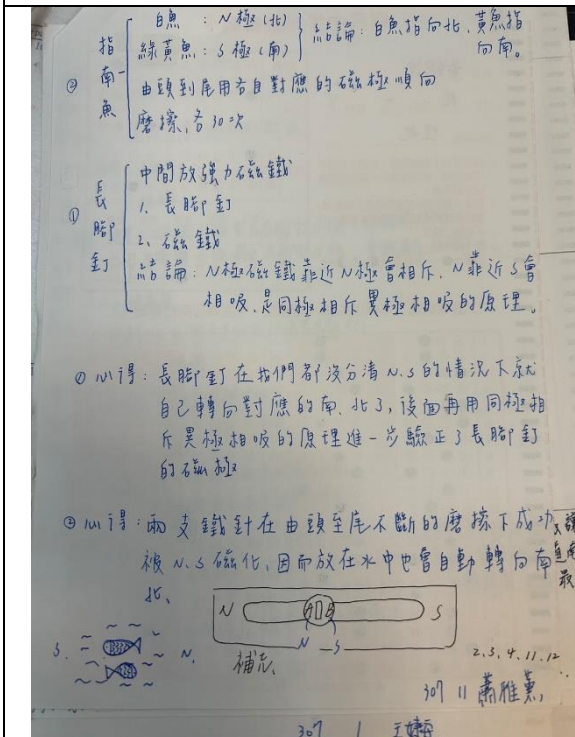 ② 指南魚
白魚 : N極(北)
綠黃魚 : S極(南)
結論: 白魚指向北, 黃魚指向南。
由頭到尾用各自對應的磁極順向
磨擦, 各30次
① 長腳釘
中間放強力磁鐵
1. 長腳釘
2. 磁鐵
結論: N極磁鐵靠近N極會相斥, N靠近S會
相吸, 是同極相斥異極相吸的原理。
① 心得: 長腳釘在我們都沒分清N.S的情況下就
自己轉向對應的南、北了, 後面再用同極相
斥異極相吸的原理進一步驗正了長腳釘
的磁極
② 心得: 兩支鐵針在由頭至尾不斷的磨擦下成功
被N.S磁化, 因而放在水中也會自動轉向南
北、
N S
N S
S. N.
補充、
2.3.4.11.12
307 11 蕭雅薰
307 1